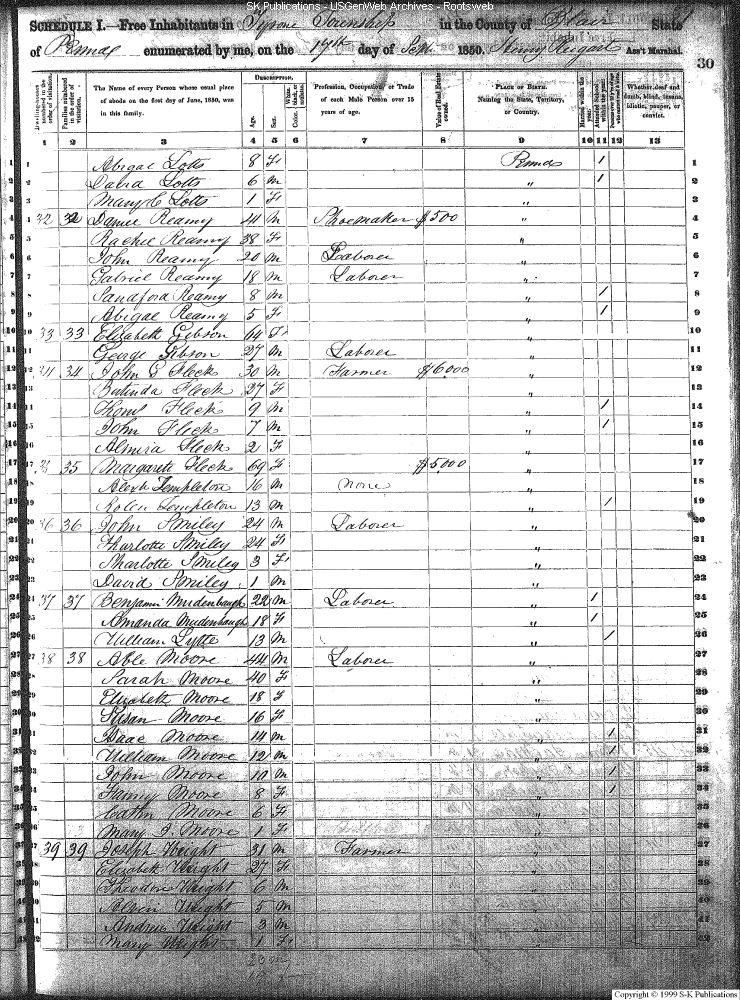 SK Publications - USGenWeb Archives - Rootsweb
SCHEDULE I.—Free Inhabitants in Tyrone Township in the County of Blair State
of Penna enumerated by me, on the 17th day of Sept. 1850. Ass't Marshal.
30
Dwelling-houses numbered in the order of visitation. Families numbered in the order of visitation. The Name of every Person whose usual place of abode on the first day of June, 1850, was in this family. DESCRIPTION. Age. Sex. White, black, or mulatto. Color. Profession, Occupation, or Trade of each Male Person over 15 years of age. Value of Real Estate owned. PLACE OF BIRTH. Naming the State, Territory, or Country. Married within the year. Attended School within the year. Whether deaf and dumb, blind, insane, idiotic, pauper, or convict.
1 2 3 4 5 6 7 8 9 10 11 12 13
1 Abigal Lotts 8 F Penna / 1
2 David Lotts 6 M " / 2
3 Mary C Lotts 1 F " 3
4 32 32 Daniel Reamy 41 M Shoemaker $500 " 4
5 Rachel Reamy 38 F " 5
6 John Reamy 20 M Laborer " 6
7 Gabriel Reamy 18 M Laborer " 7
8 Sandford Reamy 8 M " / 8
9 Abigal Reamy 5 F " / 9
10 33 33 Elizabeth Gibson 64 F " 10
11 George Gibson 27 M Laborer " 11
12 34 34 John G Fleck 30 M Farmer $6000 " 12
13 Fleck 27 F " 13
14 Fleck 9 M " / 14
15 John Fleck 7 M " / 15
16 Almira Fleck 2 F " 16
17 35 Margarett Fleck 69 F $5000 " 17
18 Alexr Templeton 16 M None " 18
19 Templeton 13 M " / 19
20 36 36 John Smiley 24 M Laborer " 20
21 Charlotte Smiley 24 F " 21
22 Charlotte Smiley 3 F " 22
23 David Smiley 1 M " 23
24 37 37 Benjamin Mudenbaugh 22 M Laborer " / 24
25 Amanda Mudenbaugh 18 F " / 25
26 William Lytle 13 M " / 26
27 38 38 Able Moore 44 M Laborer " 27
28 Sarah Moore 40 F " 28
29 Elizabeth Moore 18 F " 29
30 Susan Moore 16 F " 30
31 Isaac Moore 14 M " / 31
32 William Moore 12 M " / 32
33 John Moore 10 M " / 33
34 Fanny Moore 8 F " / 34
35 Moore 6 F " 35
36 Mary J. Moore 1 F " 36
37 39 39 Joseph Wright 31 M Farmer " 37
38 Elizabeth Wright 27 F " 38
39 Theodore Wright 6 M " 39
40 Alvin Wright 5 M " 40
41 Andrew Wright 3 M " 41
42 Mary Wright 1 F " 42
Copyright © 1999 S-K Publications